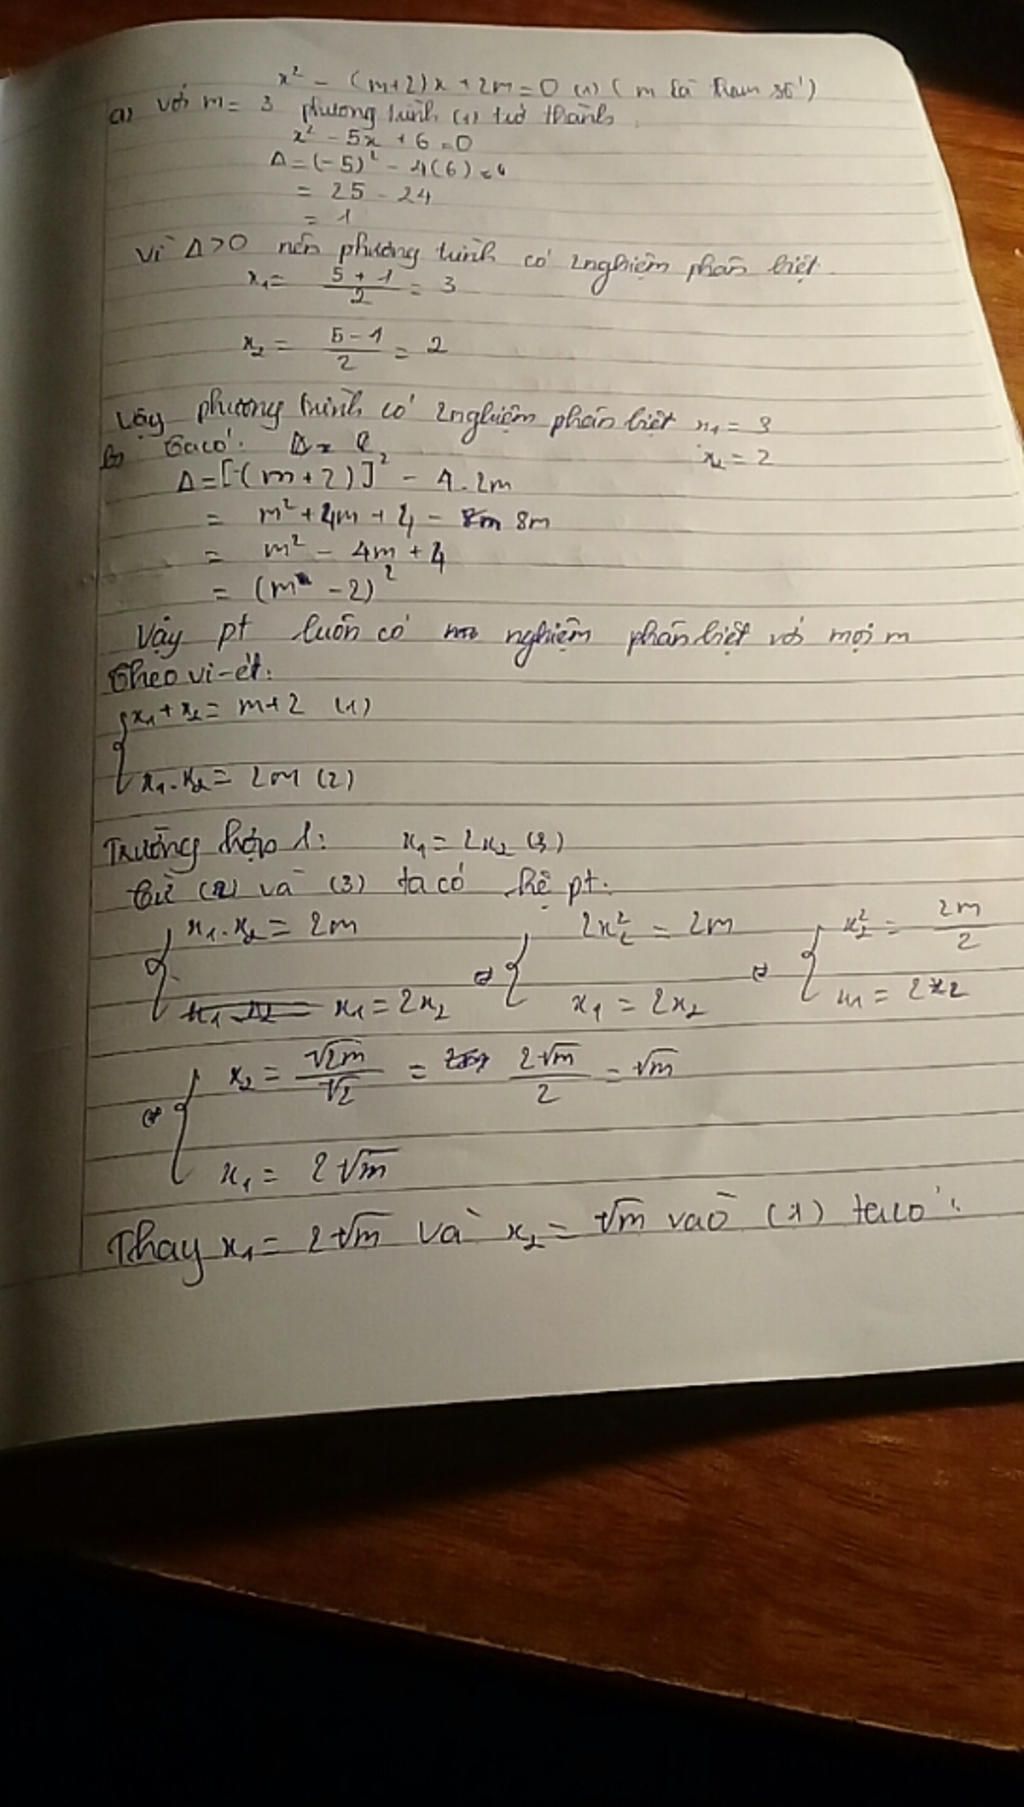 x² - (m+2)x + 2m = 0 (1) (m là tham số)
a) với m = 3 phương trình (1) trở thành
x² - 5x + 6 = 0
Δ = (-5)² - 4(6)
= 25 - 24
= 1
Vì Δ > 0 nên phương trình có 2 nghiệm phân biệt
x₁ = (5 + 1)/2 = 3
x₂ = (5 - 1)/2 = 2
Vậy phương trình có 2 nghiệm phân biệt x₁ = 3
x₂ = 2
b) Ta có: Δ =
Δ = [-(m + 2)]² - 4.2m
= m² + 4m + 4 - 8m
= m² - 4m + 4
= (m - 2)²
Vậy pt luôn có nghiệm phân biệt với mọi m
Theo vi-ét:
{ x₁ + x₂ = m+2 (1)
x₁.x₂ = 2m (2)
Trường hợp 1: x₁ = 2x₂ (3)
Từ (2) và (3) ta có hệ pt:
{ x₁.x₂ = 2m ⇔ { 2x₂² = 2m ⇔ { x₂² = 2m/2
x₁ = 2x₂ x₁ = 2x₂ x₁ = 2x₂
⇔ { x₂ = √2m/√2 = 2√m/2 = √m
x₁ = 2√m
Thay x₁ = 2√m và x₂ = √m vào (1) ta có: